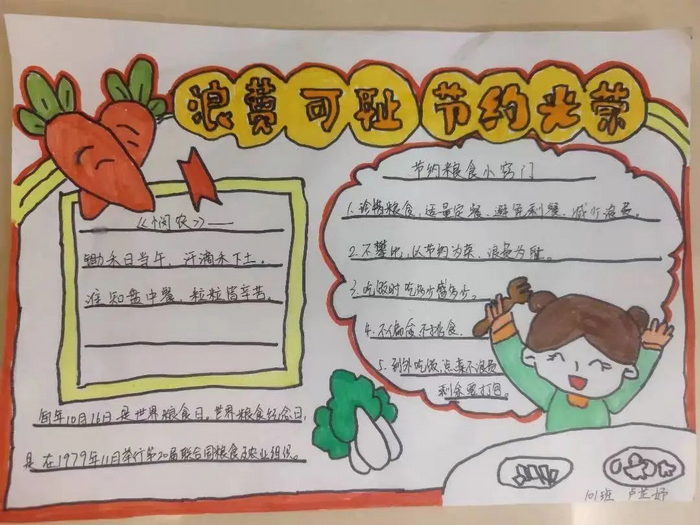 浪费可耻 节约光荣
《悯农》
锄禾日当午，汗滴禾下土。
谁知盘中餐，粒粒皆辛苦。
节约粮食小窍门
1. 珍惜粮食，适量定餐，避免剩餐，减少浪费。
2. 不攀比，以节约为荣，浪费为耻。
3. 吃饭时吃多少盛多少。
4. 不偏食不挑食。
5. 到外吃饭点菜不浪费
剩余要打包。
每年10月16日是世界粮食日。世界粮食纪念日，
是在1979年11月举行第20届联合国粮食及农业组织。
101班 卢芷妤